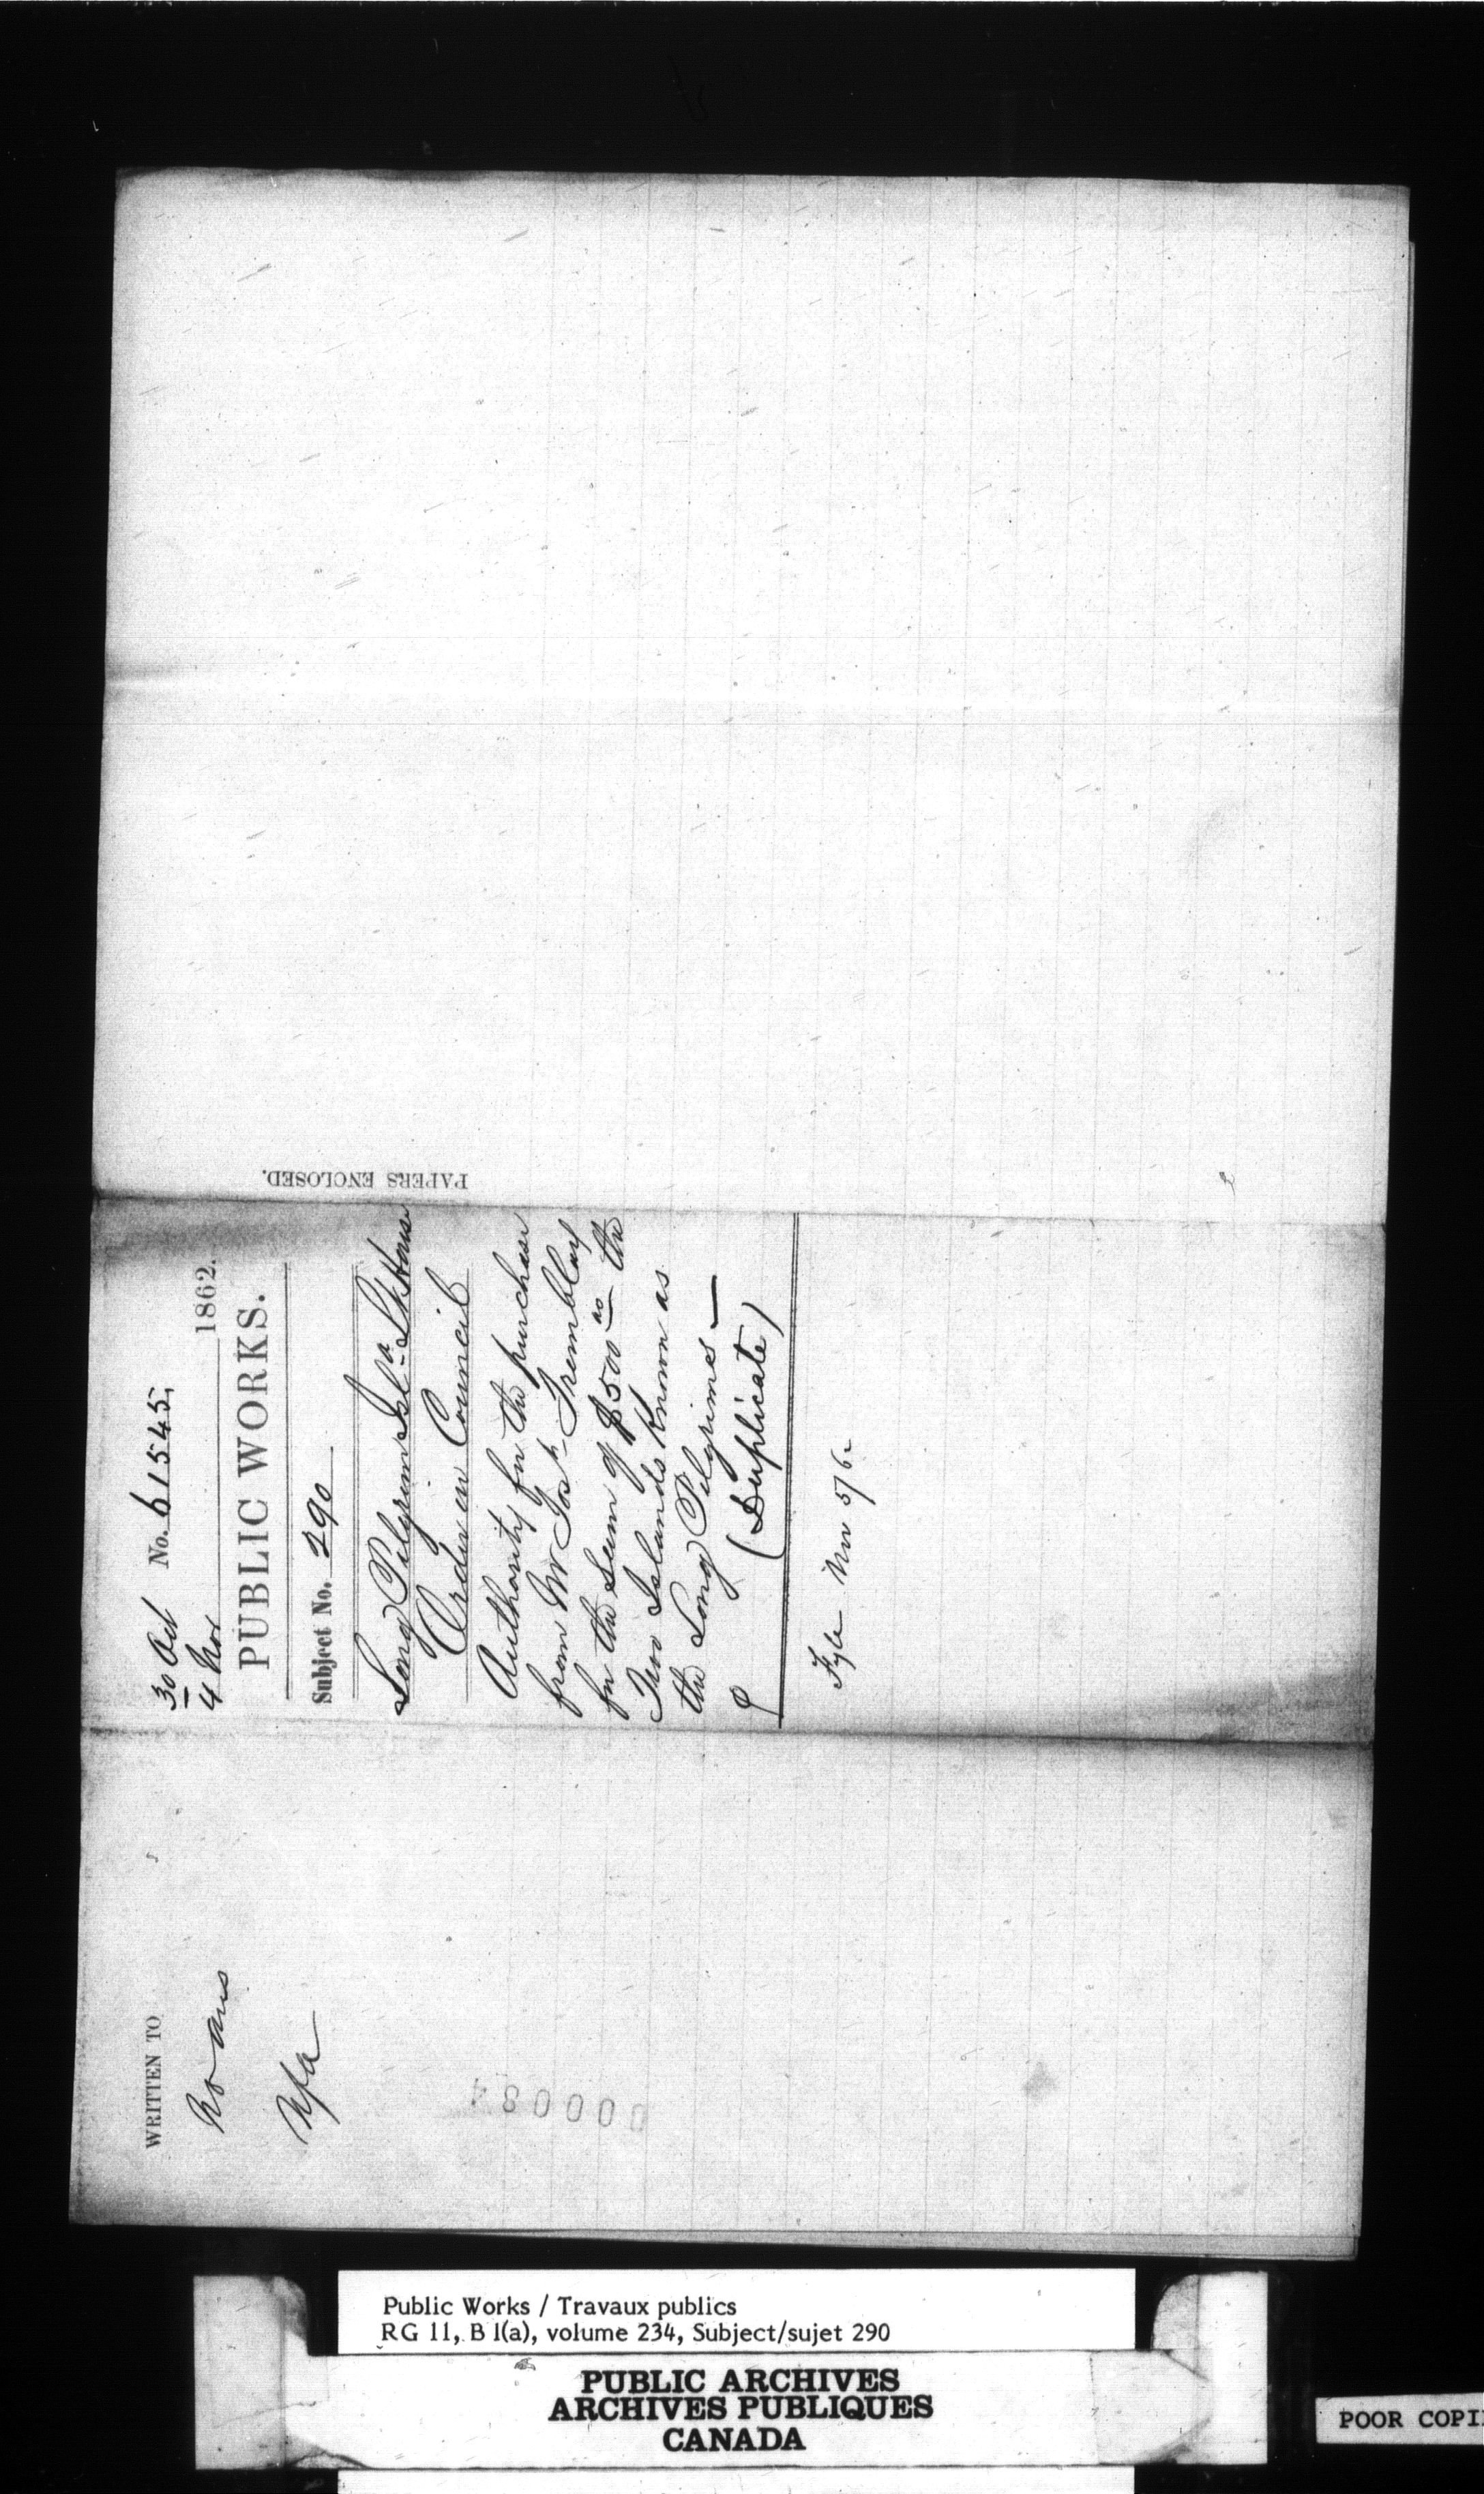 30 Oct No. 61545,
4 Nov 1862.
PUBLIC WORKS.
Subject No. 290
Long Pilgrim Isl<sup>d</sup> L<sup>t</sup> House
Order in Council
Authority for the purchase
from Mr Jos<sup>h</sup> Tremblay
for the sum of $500 <sup>00</sup> the
Two Islands known as
the Long Pilgrims —
(Duplicate)
Fyle Nov 5/62
PAPERS ENCLOSED.
WRITTEN TO
No ans
Public Works / Travaux publics
RG 11, B 1(a), volume 234, Subject/sujet 290
PUBLIC ARCHIVES
ARCHIVES PUBLIQUES
CANADA
POOR COPI